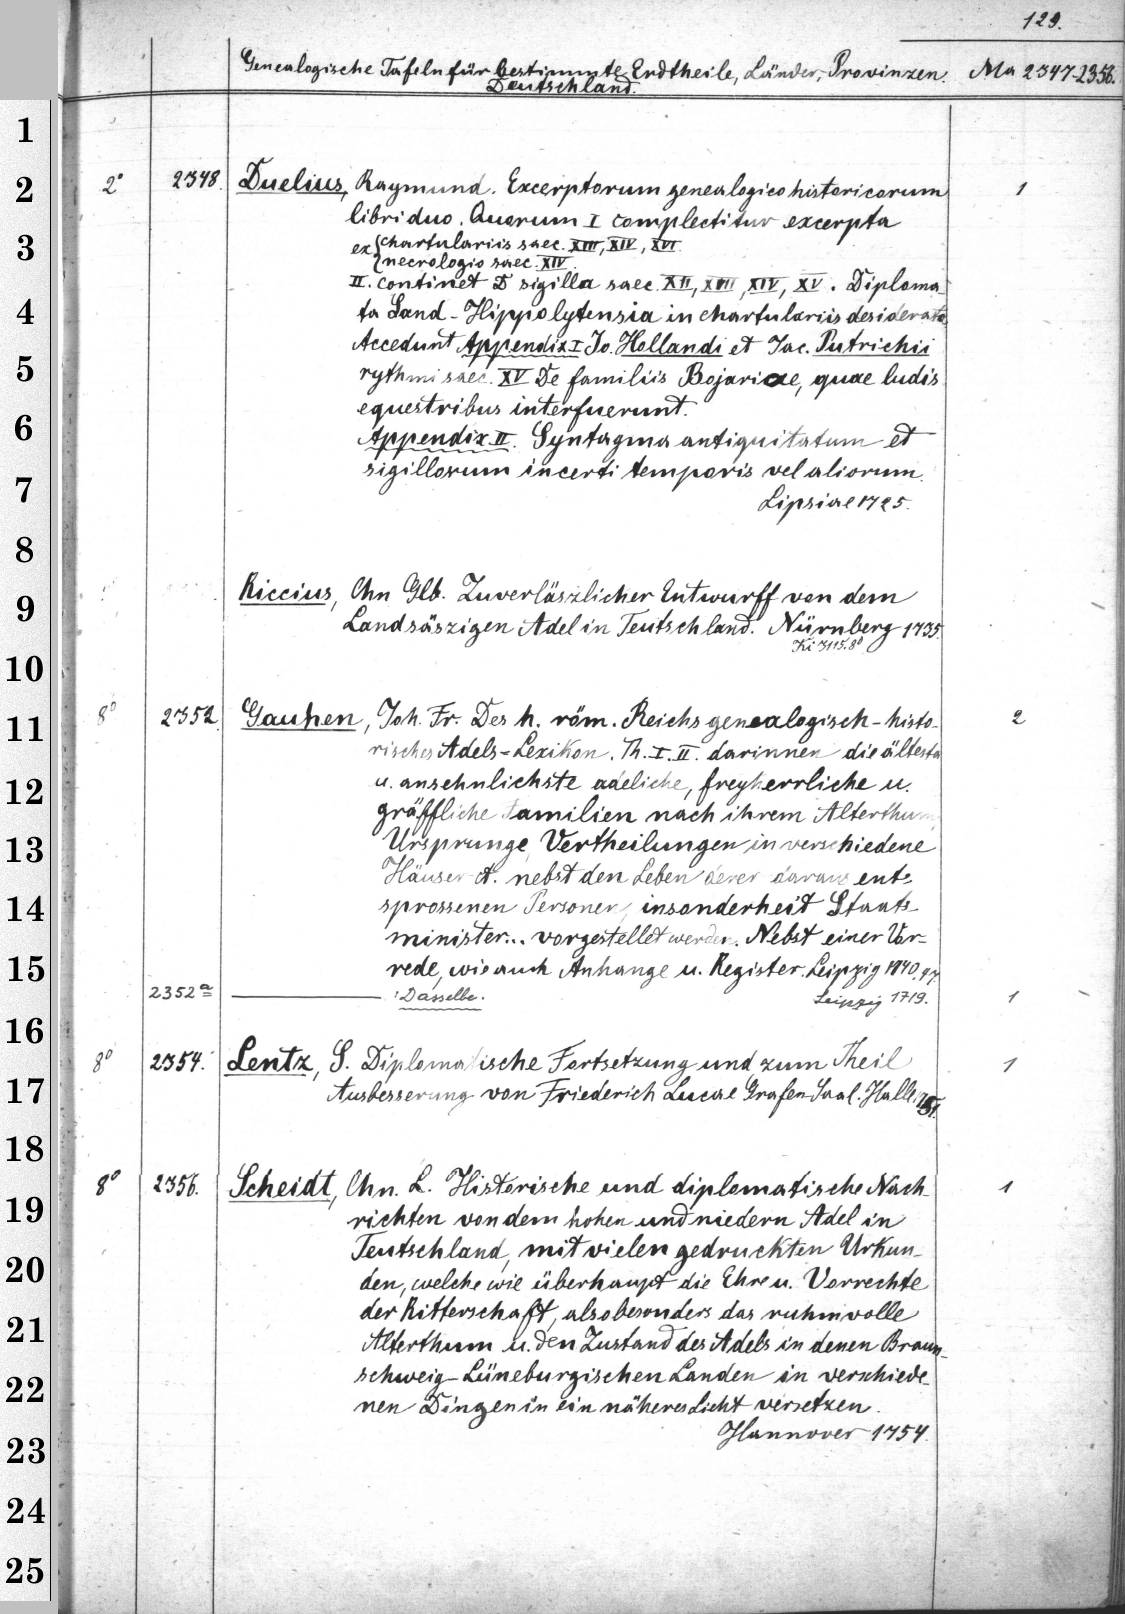 129.
Genealogische Tafeln für bestimmte Erdtheile, Länder, Provinzen. Ma 2347-2356.
Deutschland.
1
2
3
4
5
6
7
8
9
10
11
12
13
14
15
16
17
18
19
20
21
22
23
24
25
2° 2348. Duelius, Raymund. Excerptorum genealogico historicorum 1
libri duo. Quorum I complectitur excerpta
ex { chartulariis saec. XIII, XIV, XVI
necrologio saec. XIV.
II. continet D sigilla saec. XII, XIII, XIV, XV. Diploma
ta Sand-Hippolytensia in chartulariis desiderata
Accedunt Appendix I Jo. Hollandi et Jac. Putrichii
rythmi saec. XV De familiis Bojaricae, quae ludis
equestribus interfuerunt.
Appendix II. Syntagma antiquitatum et
sigillorum incerti temporis vel aliorum.
Lipsiae 1725.
Riccius, Chn Glb. Zuverläszlicher Entwurff von dem
Landsäszigen Adel in Teutschland. Nürnberg 1735.
Ki 3115. 8°
8° 2352 Gauhen, Joh. Fr. Des h. röm. Reichs genealogisch-histo- 2
risches Adels-Lexikon. Th. I. II. darinnen die älteste
u. ansehnlichste adeliche, freyherrliche u.
gräffliche Familien nach ihrem Alterthum,
Ursprunge, Vertheilungen in verschiedene
Häuser et. nebst den Leben derer daraus ent-
sprossenen Personen, insonderheit Staats-
minister... vorgestellet werden. Nebst einer Vor-
rede, wie auch Anhange u. Register. Leipzig 1740. 47.
2352 a : Dasselbe. Leipzig 1719. 1
8° 2354. Lentz, S. Diplomatische Fortsetzung und zum Theil 1
Ausbesserung von Friederich Lucae Grafen-Saal. Halle
8° 2356. Scheidt, Chn. L. Historische und diplomatische Nach- 1
richten von dem hohen und niedern Adel in
Teutschland, mit vielen gedruckten Urkun-
den, welche wie überhaupt die Ehre u. Vorrechte
der Ritterschaft, also besonders das ruhmvolle
Alterthum u. den Zustand des Adels in denen Braun-
schweig-Lüneburgischen Landen in verschiede-
nen Dingen in ein näheres Licht versetzen.
Hannover 1754.